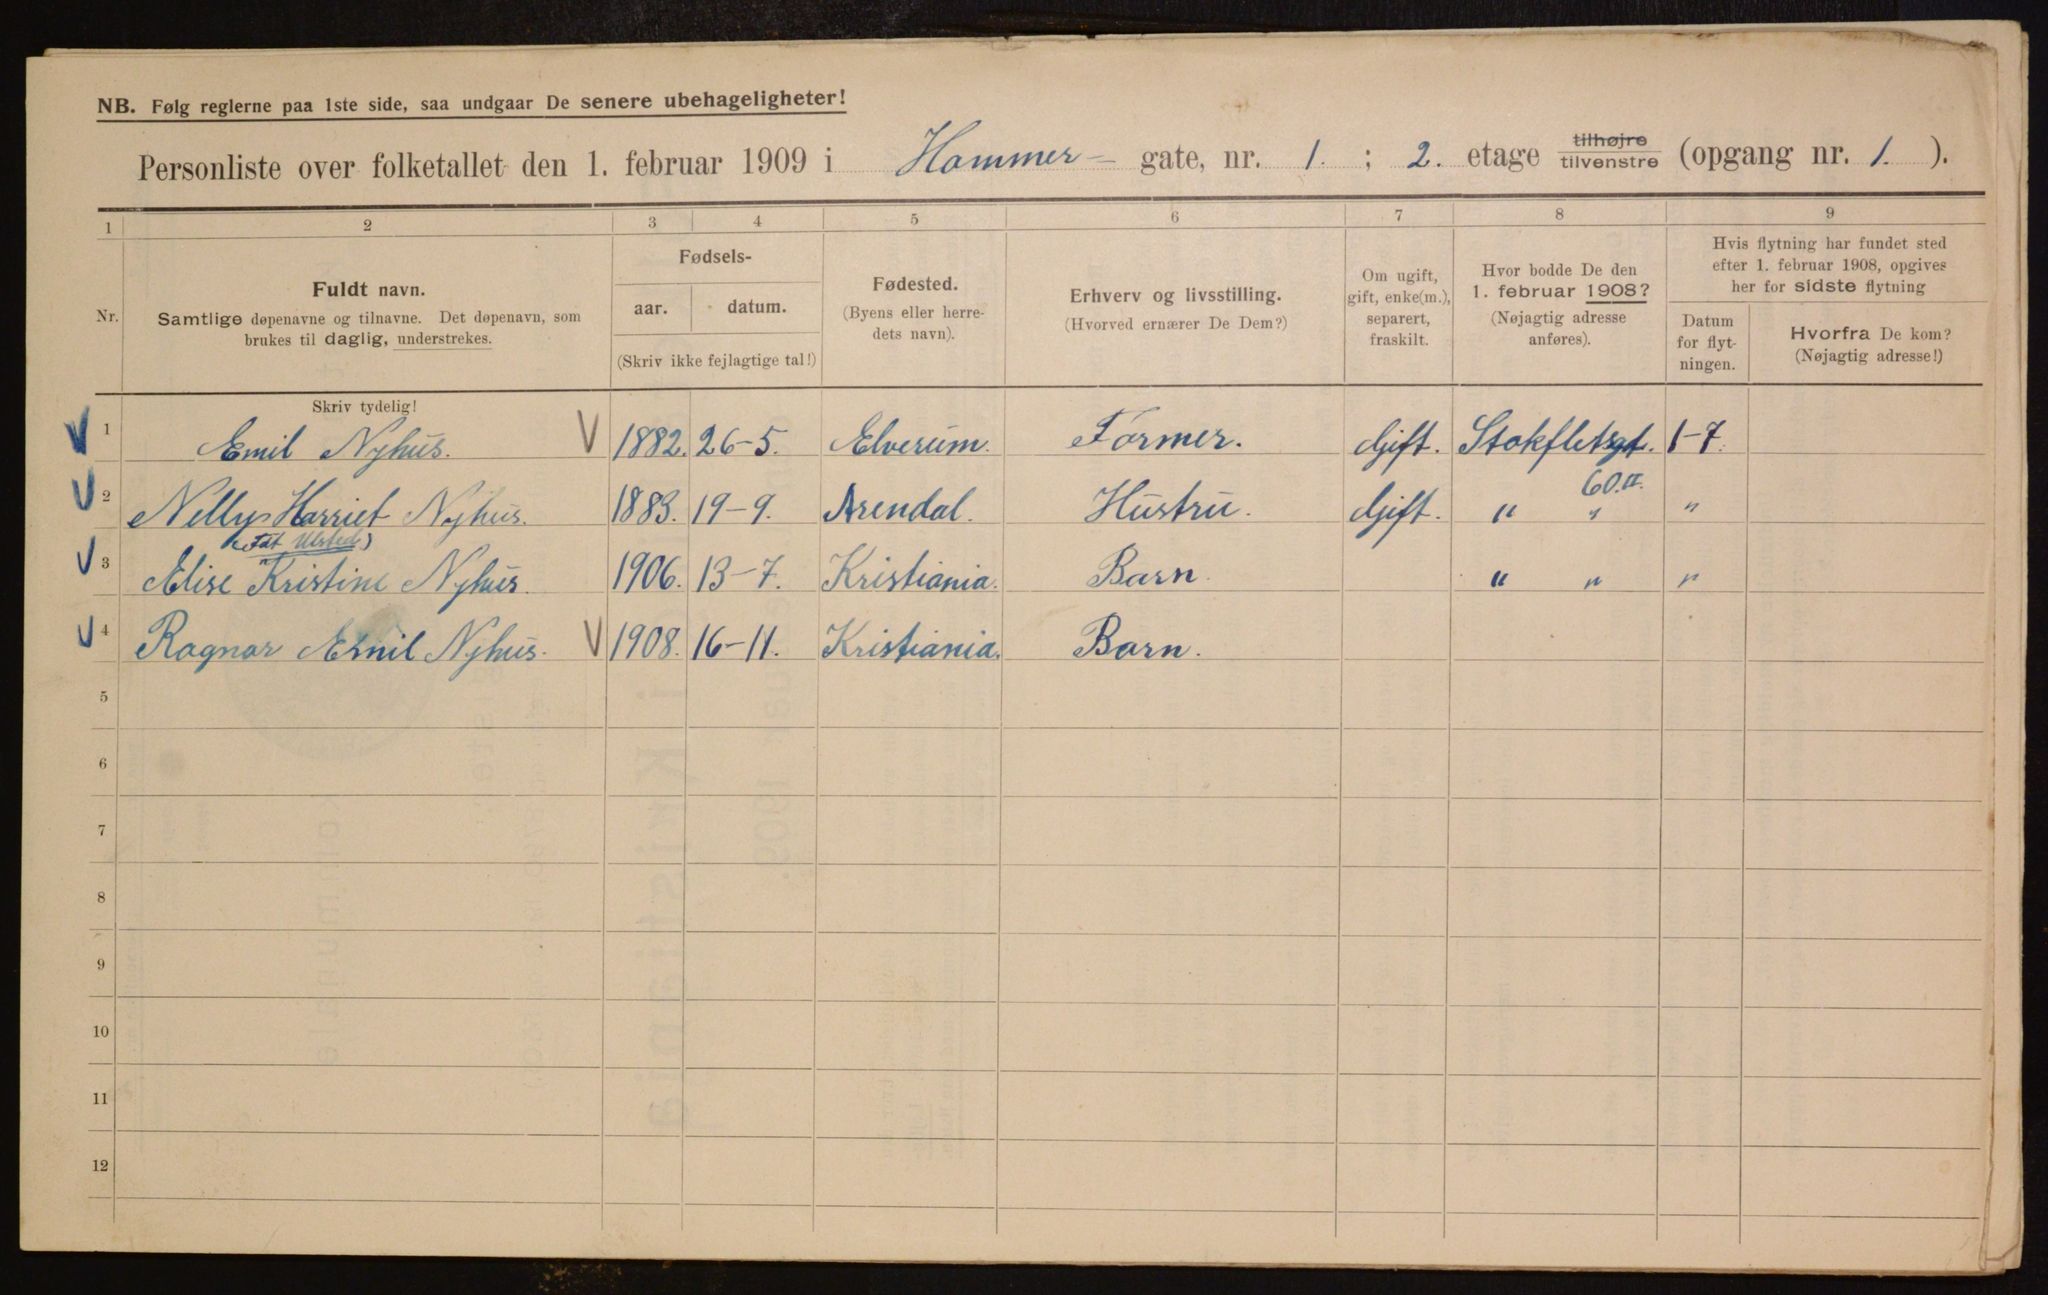 NB. Følg reglerne paa 1ste side, saa undgaar De senere ubehageligheter!
Personliste over folketallet den 1. februar 1909 i Hammer- gate, nr. 1. ; 2. etage tilhøjre tilvenstre (opgang nr. 1. ).
1 2 3 4 5 6 7 8 9
Nr.
Fuldt navn.
Samtlige døpenavne og tilnavne. Det døpenavn, som
brukes til daglig, understrekes.
Fødsels-
aar. datum.
(Skriv ikke fejlagtige tal!)
Fødested.
(Byens eller herre-
dets navn).
Erhverv og livsstilling.
(Hvorved ernærer De Dem?)
Om ugift,
gift, enke(m.),
separert,
fraskilt.
Hvor bodde De den
1. februar 1908?
(Nøjagtig adresse
anføres).
Hvis flytning har fundet sted
efter 1. februar 1908, opgives
her for sidste flytning
Datum
for flyt-
ningen.
Hvorfra De kom?
(Nøjagtig adresse!)
Skriv tydelig!
1 Emil Nyhus. 1882. 26-5. Elverum. Former. Gift. Stokfletsgt. 1-7.
60.II.
2 Nelly Harriet Nyhus. 1883. 19-9. Arendal. Hustru. Gift. " " "
(Føt Ulsted)
3 Elise Kristine Nyhus. 1906. 13-7. Kristiania. Barn. " " "
4 Ragnar Emil Nyhus. 1908. 16-11. Kristiania. Barn.
5
6
7
8
9
10
11
12